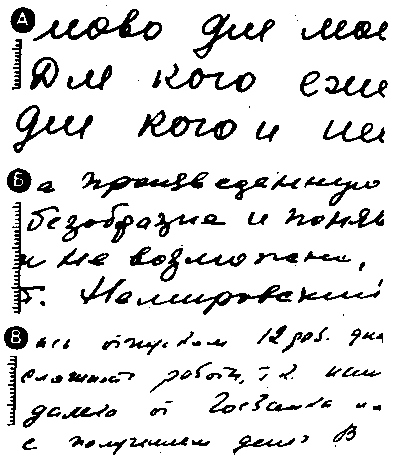 А ново для мое
Для кого еже
Для кого и не
Б а произведенную
безобразие и понять
и не возможно,
Г. Немировский
В ась отпуском 12 раб. дня
сложность работы, т.к. наш
далеко от Госбанка и
с получением денег В